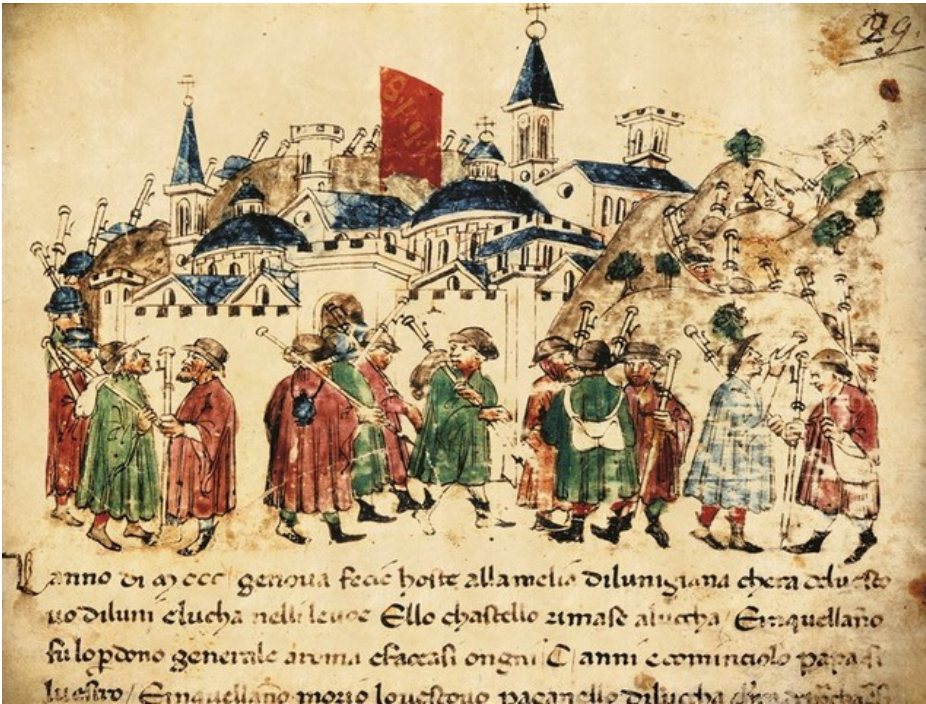 29.
Lanno di M ccc genova fecie hoste alla melia dilunigiana chera delvesco
vo diluni elucha nelli levoe Ello chastello rimase aluccha / Einquellano
fu lo pdono generale aroma efaceasi ongni C anni ecominciolo papa si
lvestro / Einquellano morio lovescovo paganello dilucha